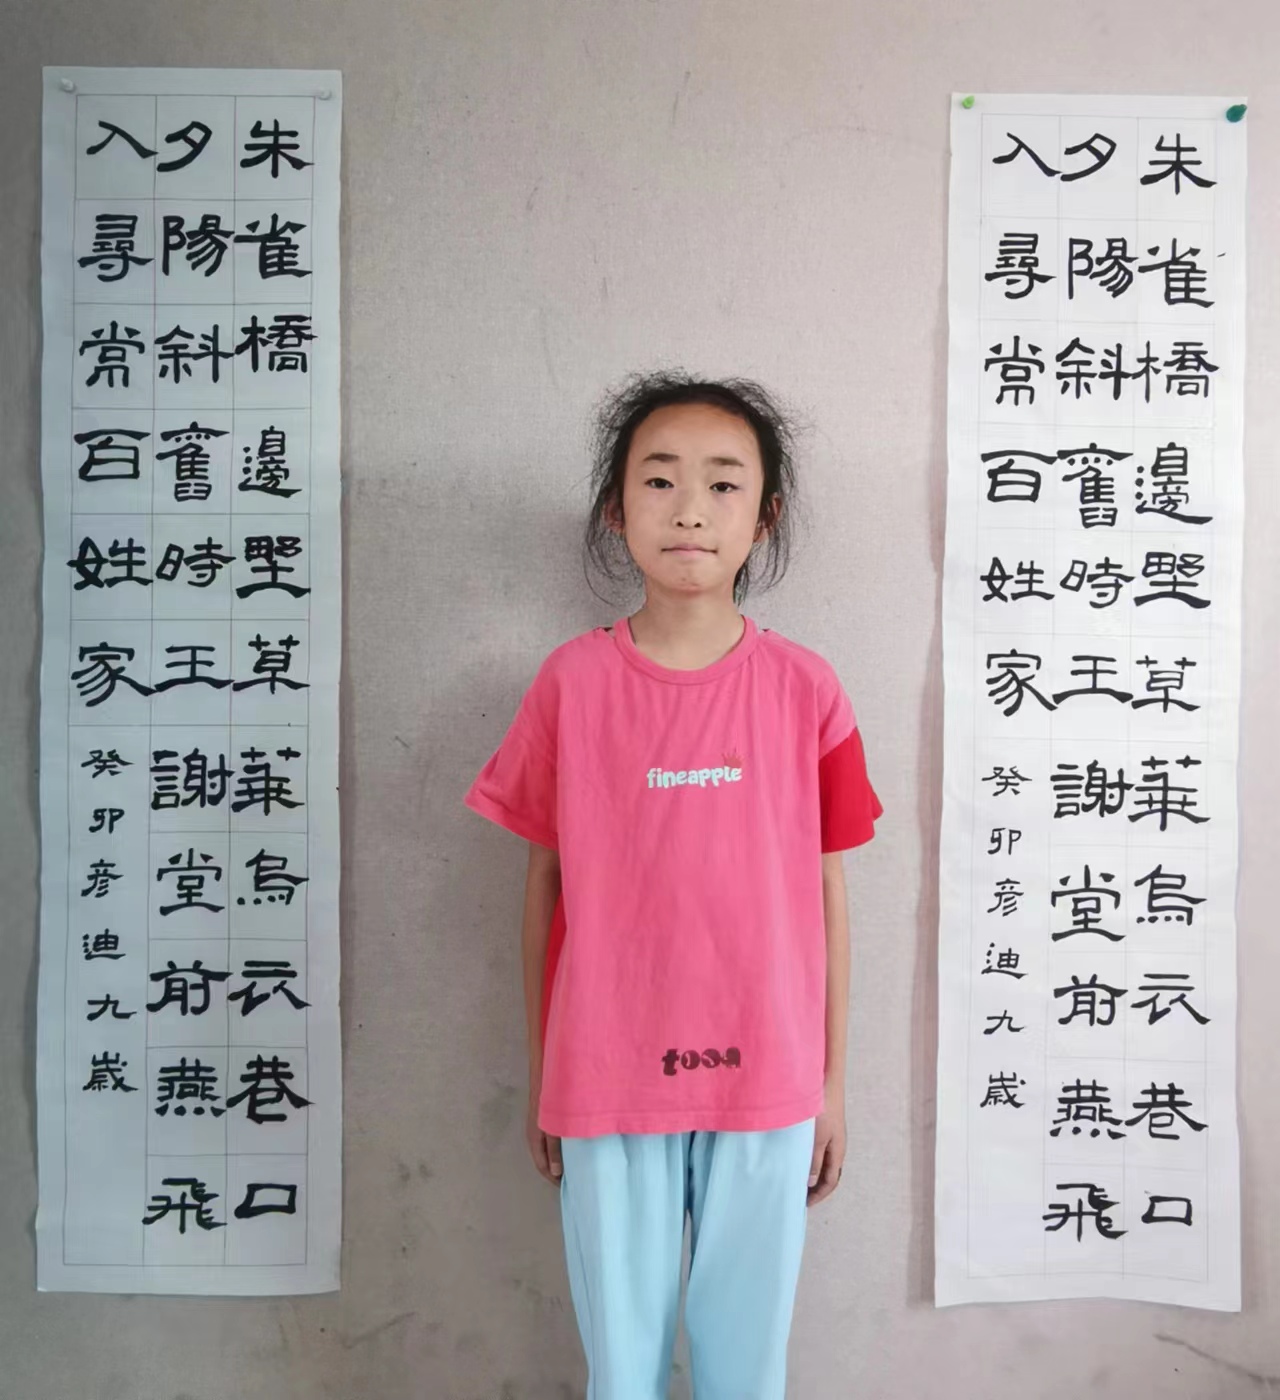 朱雀橋邊野草華烏衣巷口
夕陽斜舊時王謝堂前燕飛
入尋常百姓家
癸卯彦迪九歲
fineapple
tosa
朱雀橋邊野草華烏衣巷口
夕陽斜舊時王謝堂前燕飛
入尋常百姓家
癸卯彦迪九歲